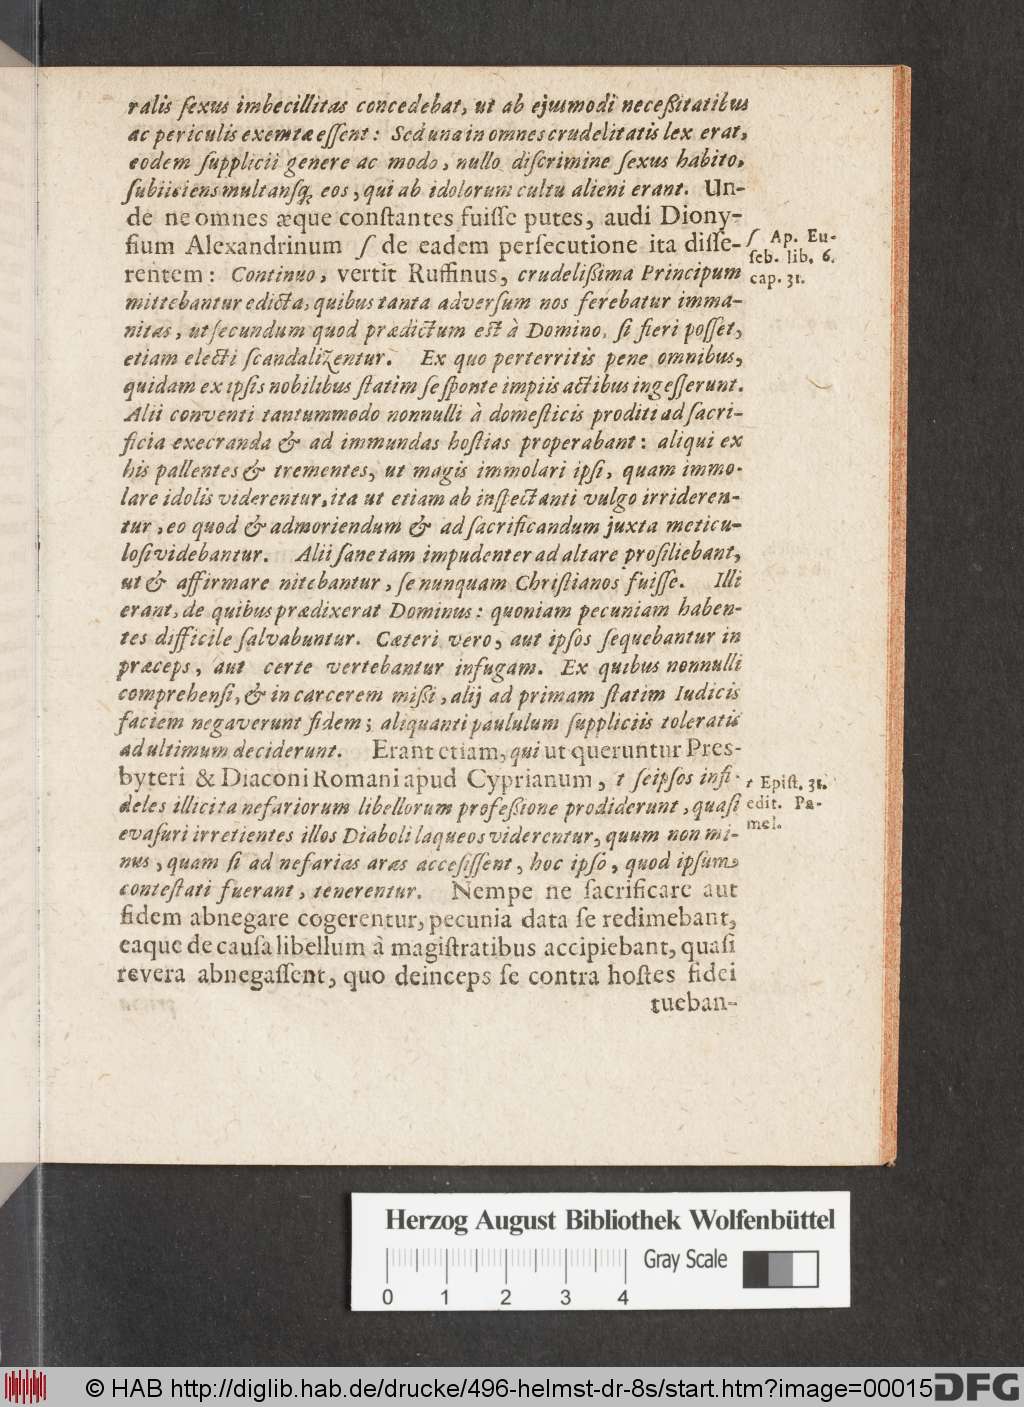 ralis ſexus imbecillitas concedebat, ut ab ejusmodi neceßitatibus
ac periculis exemtæ eſſent: Sed una in omnes crudelitatis lex erat,
eodem ſupplicii genere ac modo, nullo diſcrimine ſexus habito,
ſubiiciens multansq́; eos, qui ab idolorum cultu alieni erant. Un-
de ne omnes æque conſtantes fuiſſe putes, audi Diony-
ſium Alexandrinum ſ de eadem perſecutione ita diſſe-
rentem: Continuo, vertit Ruffinus, crudelißima Principum
mittebantur edicta, quibus tanta adverſum nos ferebatur imma-
nitas, ut ſecundum quod prædictum est à Domino, ſi fieri poſſet,
etiam electi ſcandalizentur. Ex quo perterritis pene omnibus,
quidam ex ipſis nobilibus ſtatim ſe ſponte impiis actibus ingeſſerunt.
Alii conventi tantummodo nonnulli à domeſticis proditi ad ſacri-
ficia execranda & ad immundas hoſtias properabant: aliqui ex
his pallentes & trementes, ut magis immolari ipſi, quam immo-
lare idolis viderentur, ita ut etiam ab inſpectanti vulgo irrideren-
tur, eo quod & ad moriendum & ad ſacrificandum juxta meticu-
loſi videbantur. Alii ſane tam impudenter ad altare proſiliebant,
ut & affirmare nitebantur, ſe nunquam Chriſtianos fuiſſe. Illi
erant, de quibus prædixerat Dominus: quoniam pecuniam haben-
tes difficile ſalvabuntur. Cæteri vero, aut ipſos ſequebantur in
præceps, aut certe vertebantur in fugam. Ex quibus nonnulli
comprehenſi, & in carcerem mißi, alij ad primam ſtatim Iudicis
faciem negaverunt fidem; aliquanti paululum ſuppliciis toleratis
ad ultimum deciderunt. Erant etiam, qui ut queruntur Pres-
byteri & Diaconi Romani apud Cyprianum, t ſeipſos infi-
deles illicita nefariorum libellorum profeßione prodiderunt, quaſi
evaſuri irretientes illos Diaboli laqueos viderentur, quum non mi-
nus, quam ſi ad nefarias aras acceſiſſent, hoc ipſo, quod ipſum
conteſtati fuerant, tenerentur. Nempe ne ſacrificare aut
fidem abnegare cogerentur, pecunia data ſe redimebant,
eaque de cauſa libellum à magiſtratibus accipiebant, quaſi
revera abnegaſſent, quo deinceps ſe contra hoſtes fidei
tueban-
ſ Ap. Eu-
ſeb. lib. 6.
cap. 31.
t Epiſt. 31.
edit. Pa-
mel.
Herzog August Bibliothek Wolfenbüttel
Gray Scale
0 1 2 3 4
© HAB http://diglib.hab.de/drucke/496-helmst-dr-8s/start.htm?image=00015
DFG